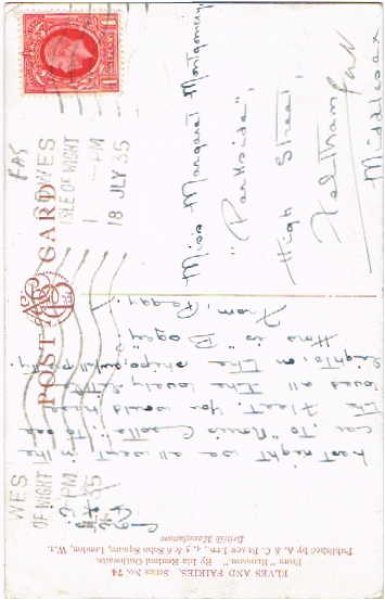 POST CARD
COWES
ISLE OF WIGHT
1 - PM
18 JLY 35
WES
OF WIGHT
PM
35
Miss Margaret Montgomery
"Parkside",
High Street,
Feltham
Middlesex
Last night we all went in the
car to
to see
the Fleet. You would have
loved all the lovely
lights on the ships.
How is
From, Peggy.
ELVES AND FAIRIES. Series No. 74
From "Blossom." By Ida Rentoul Outhwaite.
Published by A. & C. Black Ltd., 4, 5 & 6 Soho Square, London, W.1.
British Manufacture